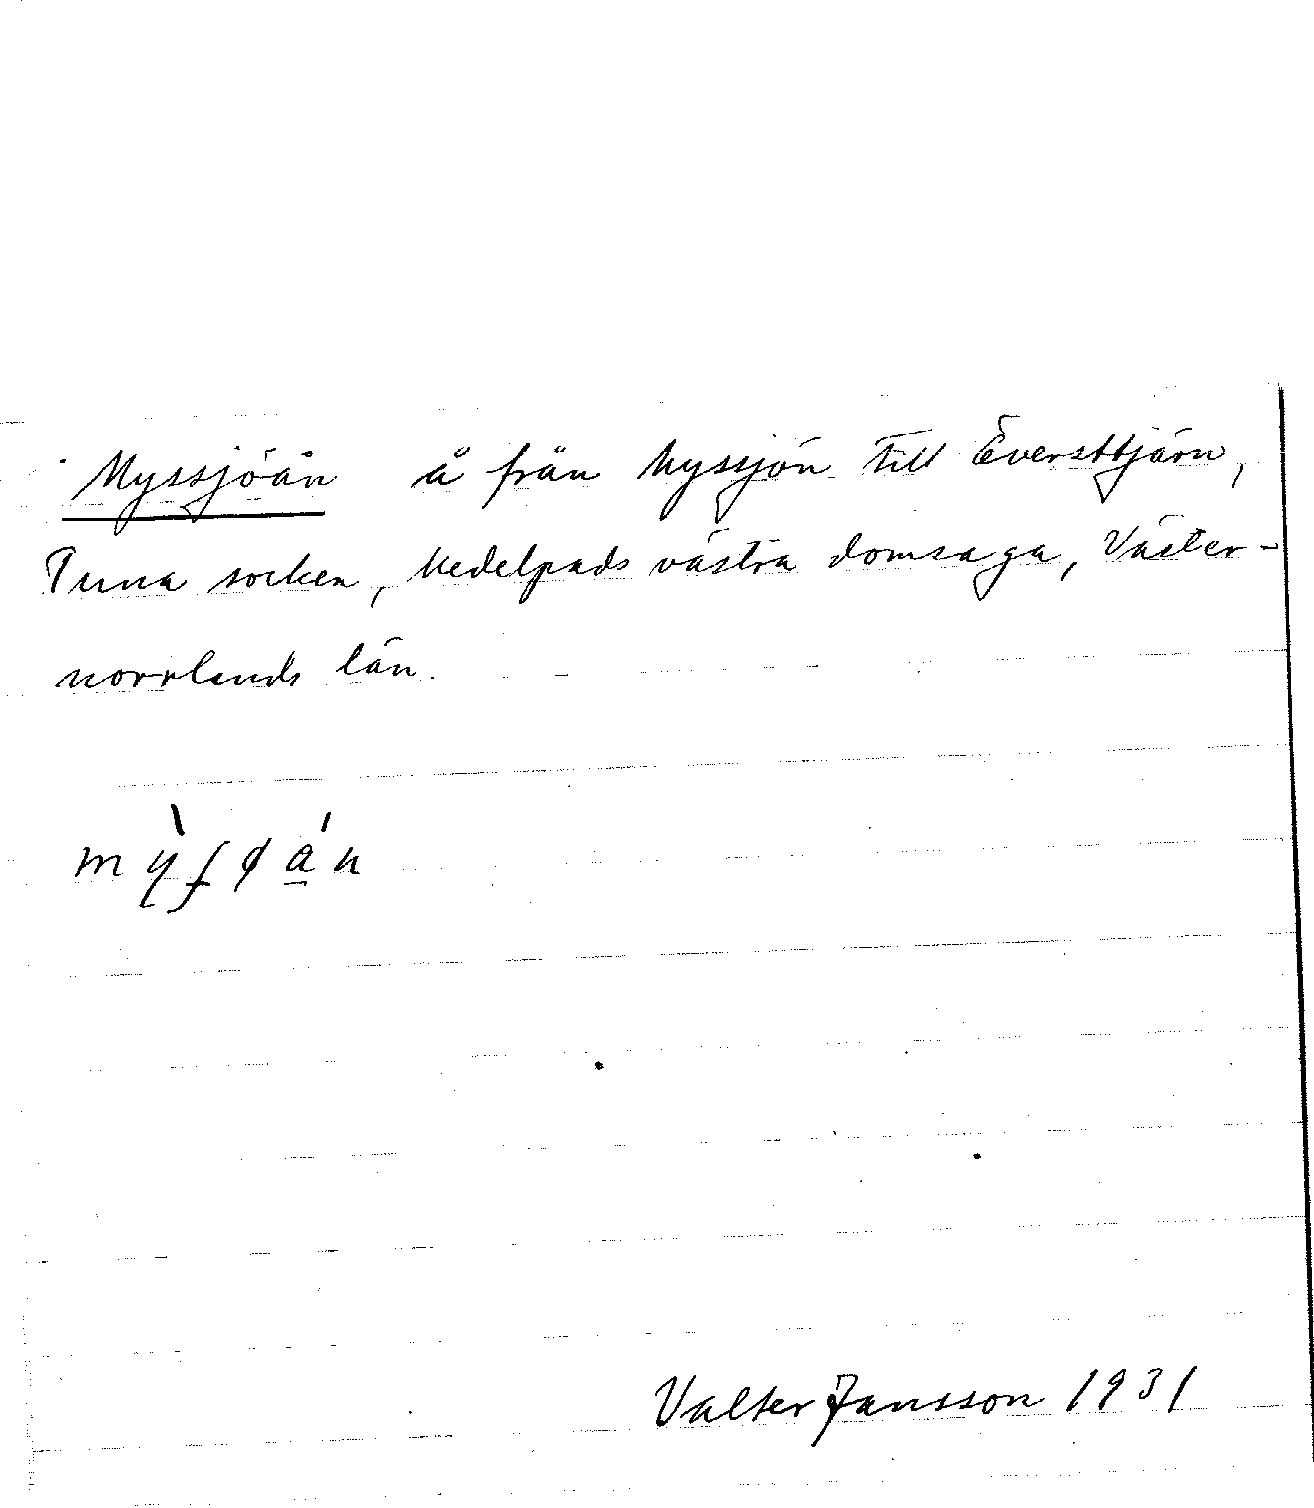 Myssjöån å från Myssjön till Eversttjärn,
Tuna socken, Medelpads västra domsaga, Väster-
norrlands län.
Valter Jansson 1931